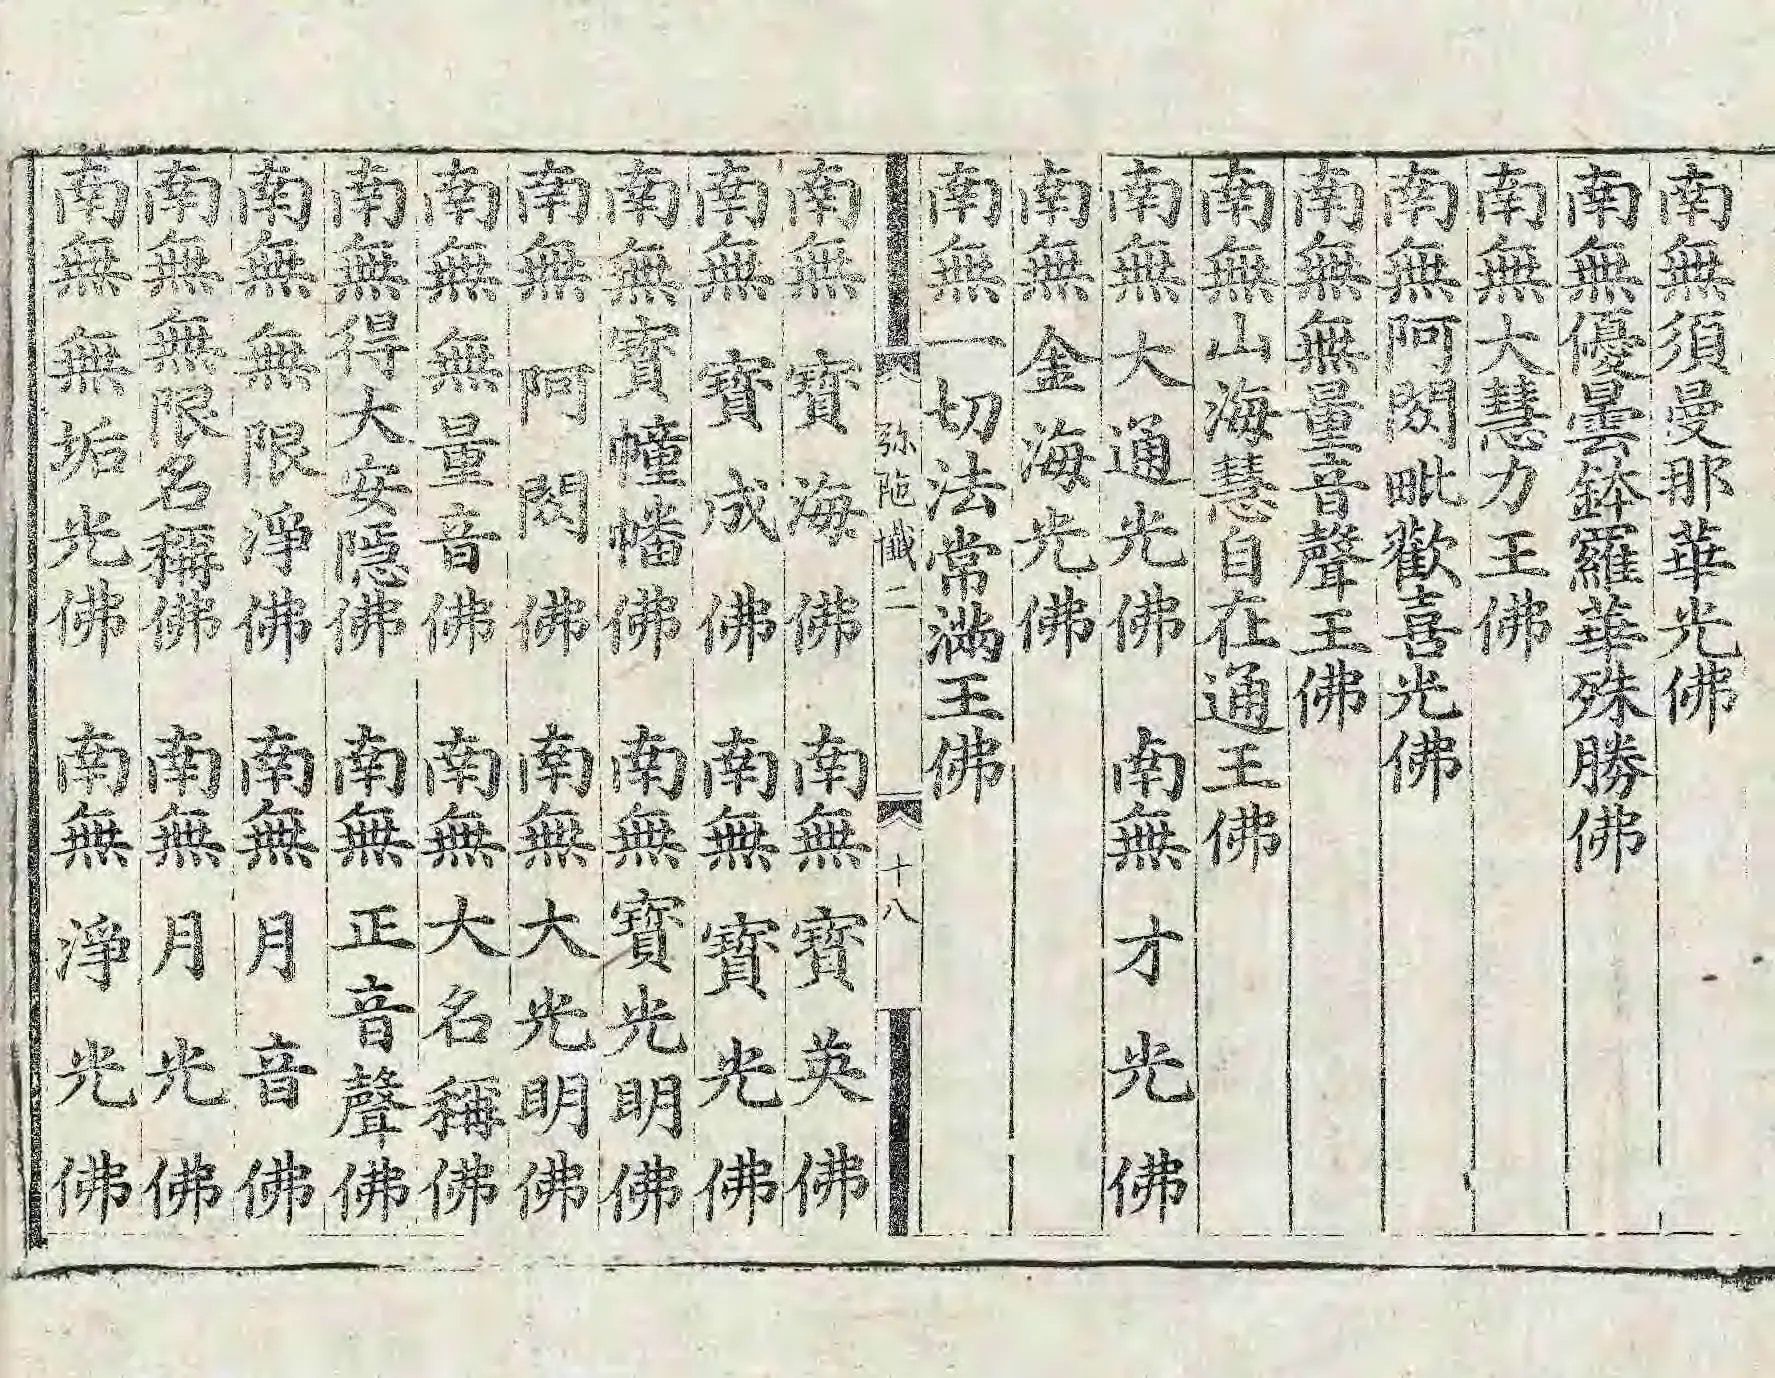 南無須曼那華光佛
南無優曇鉢羅華殊勝佛
南無大慧力王佛
南無阿閦毗歡喜光佛
南無無量音聲王佛
南無山海慧自在通王佛
南無大通光佛 南無才光佛
南無金海光佛
南無一切法常滿王佛
弥陁懺二 十八
南無寳海佛 南無寳英佛
南無寳成佛 南無寳光佛
南無寳幢幡佛 南無寳光明佛
南無阿閦佛 南無大光明佛
南無無量音佛 南無大名稱佛
南無得大安隠佛 南無正音聲佛
南無無限淨佛 南無月音佛
南無無限名稱佛 南無月光佛
南無無垢光佛 南無淨光佛